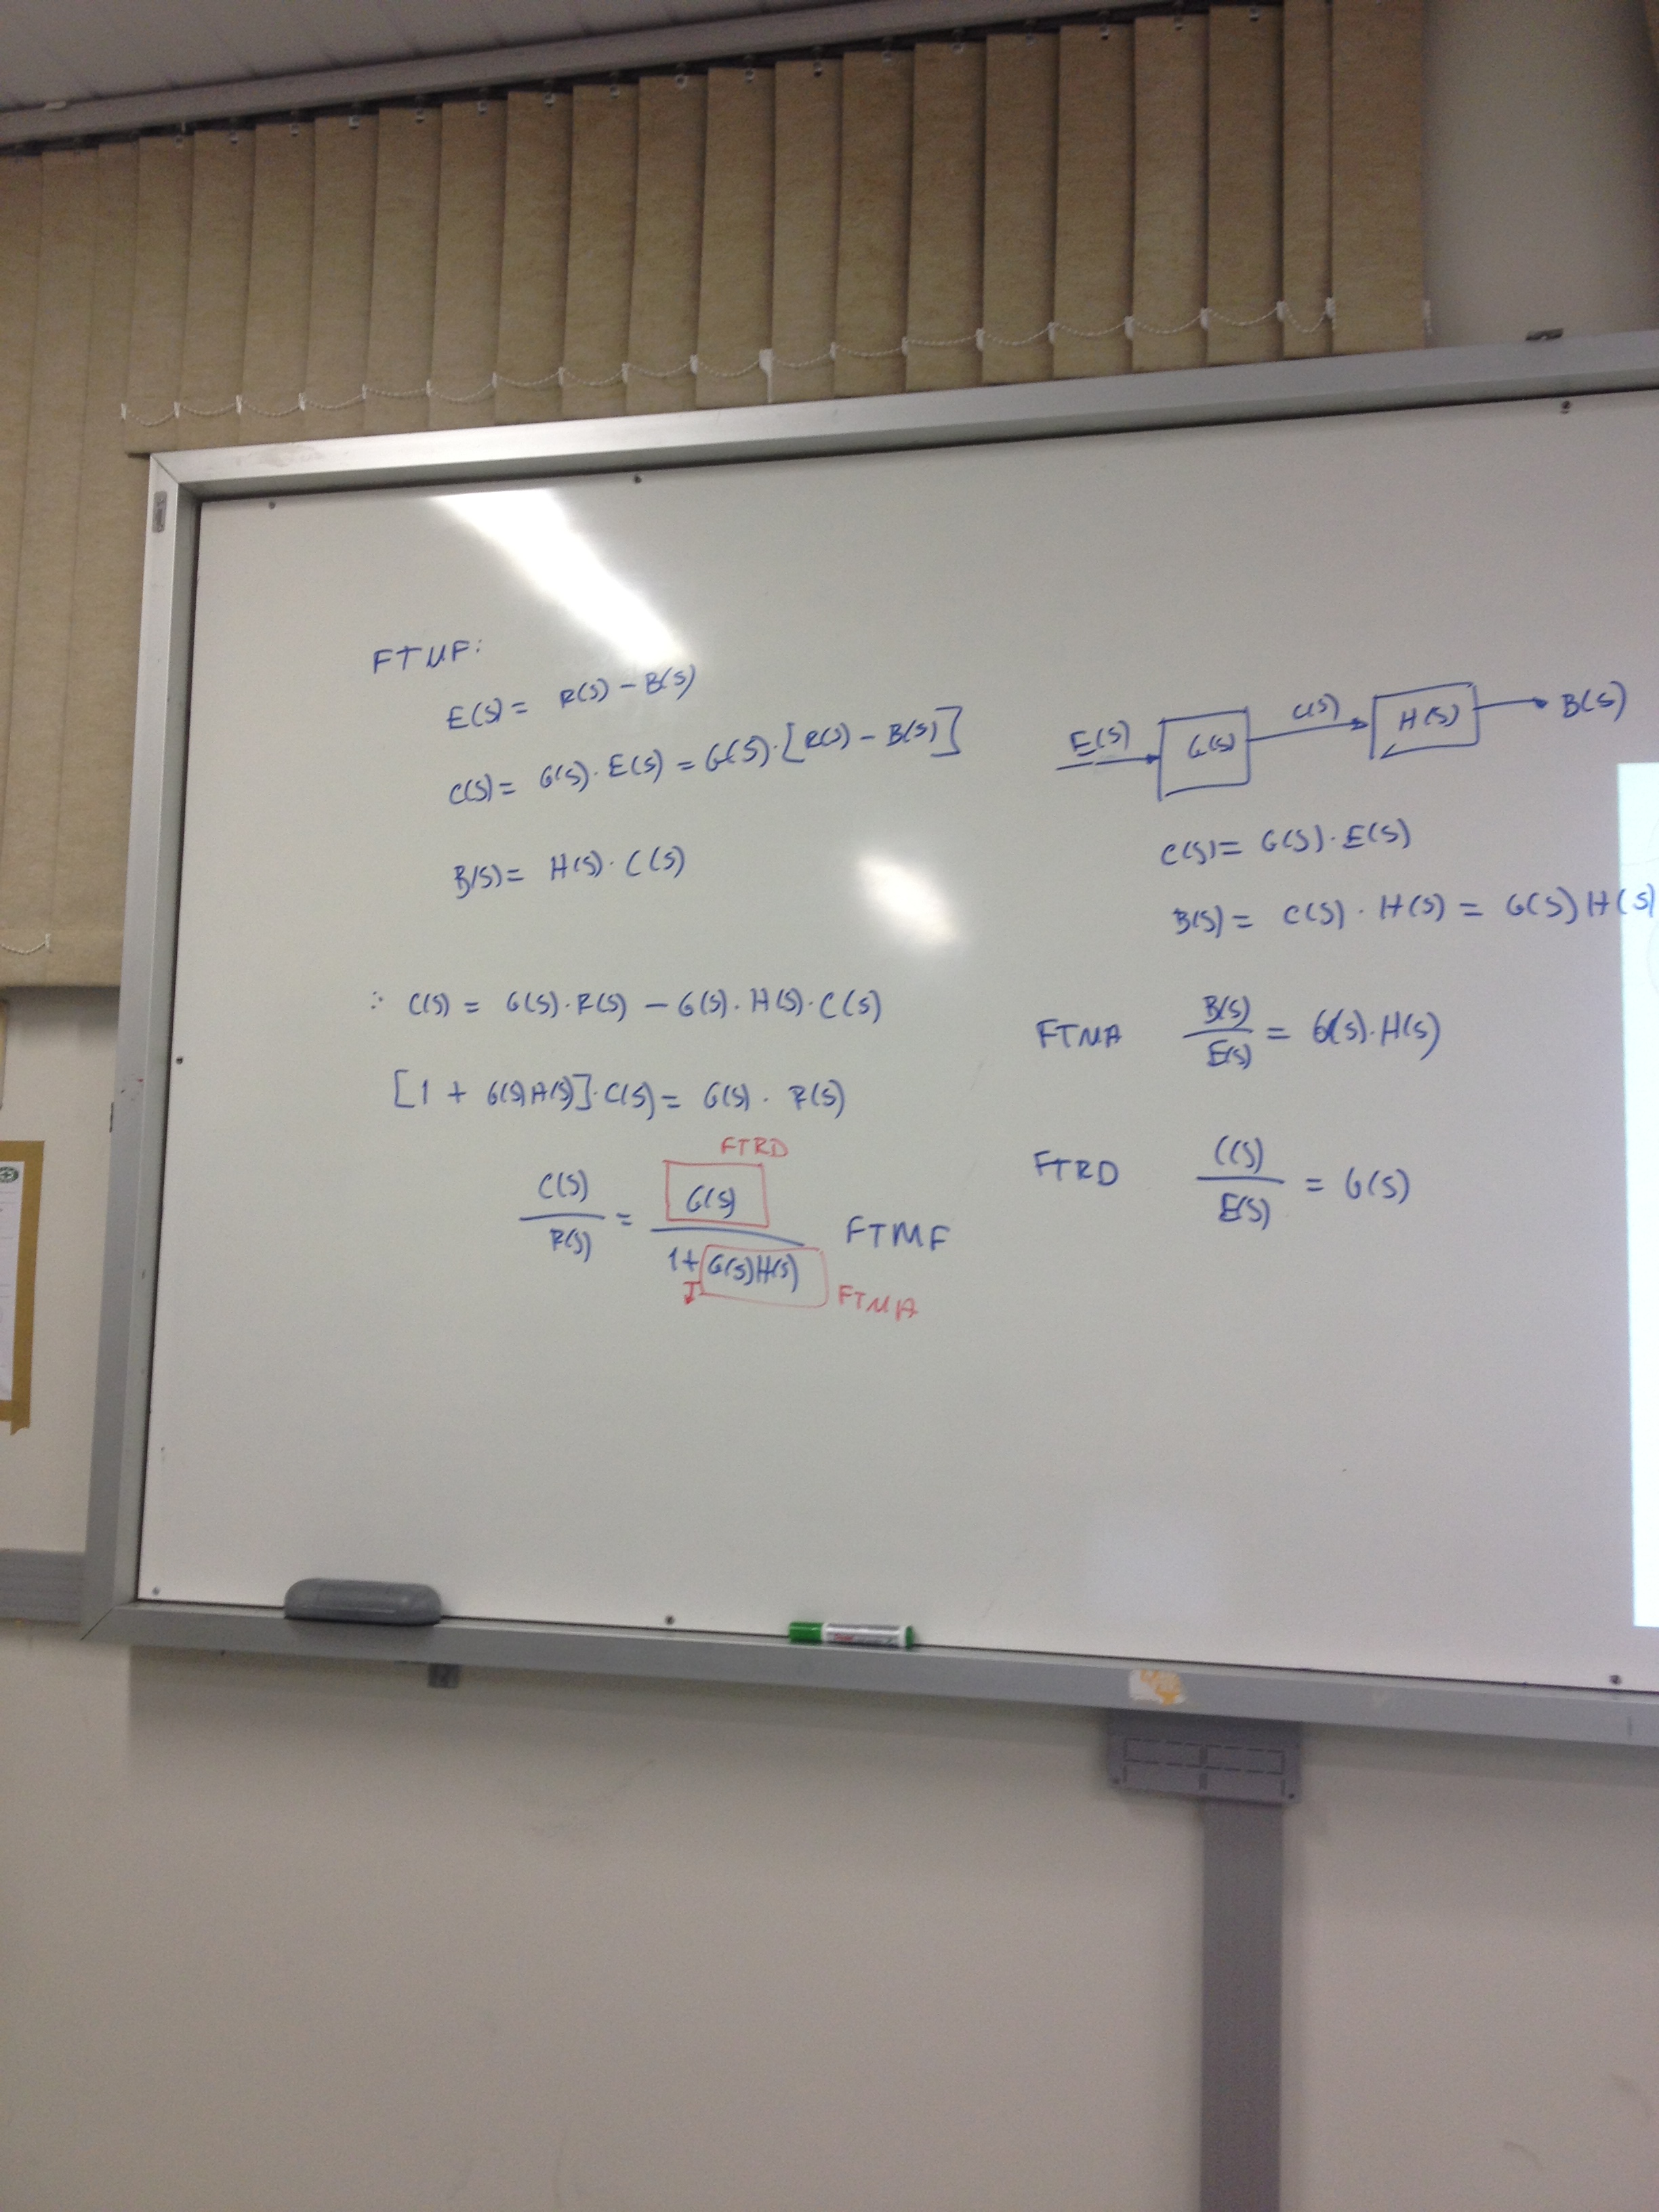 FTMF:
E(s) = R(s) - B(s)
C(s) = G(s) · E(s) = G(s) · [R(s) - B(s)]
B(s) = H(s) · C(s)
∴ C(s) = G(s) · R(s) - G(s) · H(s) · C(s)
[1 + G(s)H(s)] · C(s) = G(s) · R(s)
FTRD
C(s)/R(s) = G(s)/1+G(s)H(s) FTMF
FTMA
E(s) G(s) C(s) H(s) B(s)
C(s) = G(s) · E(s)
B(s) = C(s) · H(s) = G(s) H(s)
FTMA B(s)/E(s) = G(s) · H(s)
FTRD C(s)/E(s) = G(s)